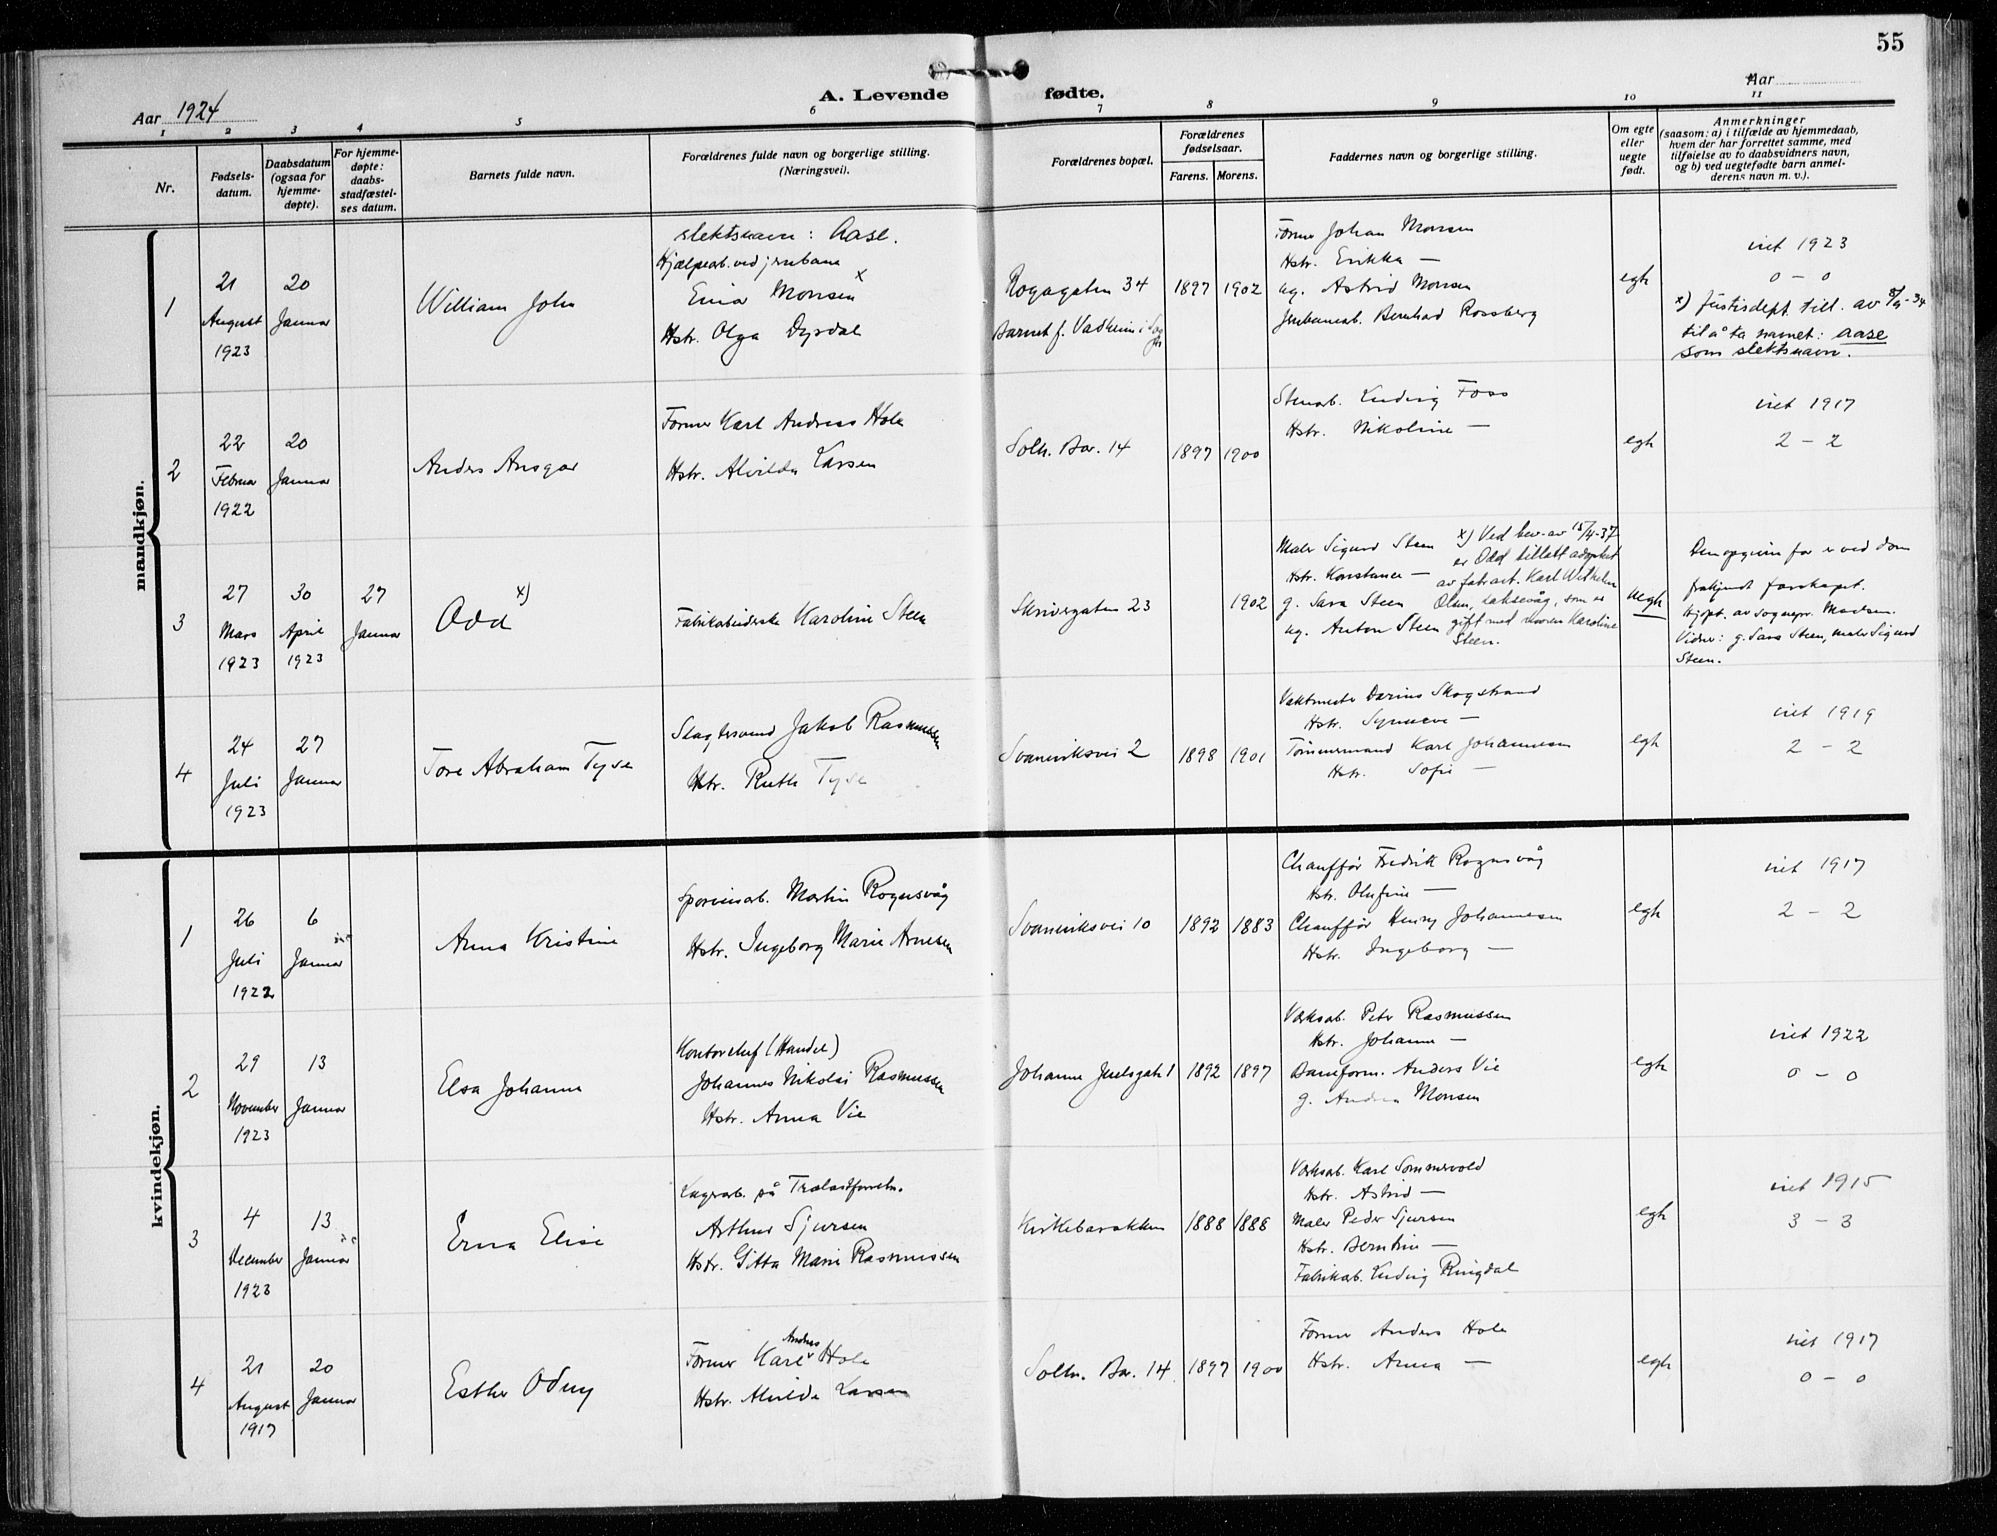 55
Aar 1924
A. Levende fødte.
Aar
1 2 3 4 5 6 7 8 9 10 11
Nr.
Fødsels-
datum.
Daabsdatum
(ogsaa for
hjemme-
døpte).
For hjemme-
døpte:
daabs-
stadfæstel-
ses datum.
Barnets fulde navn.
Forældrenes fulde navn og borgerlige stilling.
(Næringsvei).
Forældrenes bopæl.
Forældrenes
fødselsaar.
Farens. Morens.
Faddernes navn og borgerlige stilling.
Om egte
eller
uegte
født.
Anmerkninger
(saasom: a) i tilfælde av hjemmedaab,
hvem der har forrettet samme, med
tilføielse av to daabsvidners navn,
og b) ved uegtefødte barn anmel-
derens navn m. v.).
mandkjøn.
1
21
August
1923
20
Januar
William John
slektsnavn: Aase.
Hjælpearb. ved jernbane
Einar Monsen x
Hstr. Olga Dyrdal
Rogagaten 34
Barnet f. Vadheim i Sogn
1897 1902
Former Johan Monsen
Hstr. Erikka —
ug. Astrid Monsen
Jernbanearb. Bernhard Rossberg
egte
viet 1923
0 – 0
x) Justisdept. till. av 8/9-34
til å ta navnet: Aase
som slektsnavn.
2
22
Februar
1922
20
Januar
Anders Ansgar
Former Karl Andreas Hole
Hstr. Alvilde Larsen
Solh. Bar. 14
1897 1900
Stenarb. Ludvig Foss
Hstr. Nikoline —
egte
viet 1917
2 – 2
3
27
Mars
1923
30
April
1923
27
Januar
Odd x)
Fabrikarbeiderske Karoline Steen
Skrivergaten 23
1902
Maler Sigurd Steen
Hstr. Konstance —
g. Sara Steen
ug. Anton Steen
x) Ved bev. av 15/4-37
er Odd tillatt adoptert
av fabr.arb. Karl Wilhelm
Olsen, Laksevåg, som er
gift med moren Karoline
Steen.
uegte
Den opgivne far er ved dom
frakjendt farskapet.
Hj.døpt. av sognepr. Madsen.
Vidner: g. Sara Steen, maler Sigurd
Steen.
4
24
Juli
1923
27
Januar
Tore Abraham Tyse
Slagtersvend Jakob Rasmussen
Hstr. Ruth Tyse
Svaneviksvei 2
1898 1901
Vaktmester Darius Skogstrand
Hstr. Synneve —
Tømmermand Karl Johannesen
Hstr. Sofie —
egte
viet 1919
2 – 2
kvindekjøn.
1
26
Juli
1922
6
Januar
Anna Kristine
Sporveisarb. Martin Rognsvåg
Hstr. Ingeborg Marie Arnesen
Svaneviksvei 10
1892 1883
Chauffør Fredrik Rognsvåg
Hstr. Olufine —
Chauffør Henry Johannesen
Hstr. Ingeborg —
egte
viet 1917
2 – 2
2
29
November
1923
13
Januar
Elsa Johanne
Kontorchef (Handel)
Johannes Nikolai Rasmussen
Hstr. Anna Vie
Johanne Juelsgate 1
1892 1897
Værksarb. Peter Rasmussen
Hstr. Johanne —
Baneform. Anders Vie
g. Andrea Monsen
egte
viet 1922
0 – 0
3
4
December
1923
13
Januar
Erna Elise
Lagerarb. på Trælastforretn.
Arthur Sjursen
Hstr. Gitta Marie Rasmussen
Kirkebarakken
1888 1888
Værksarb. Karl Sommervold
Hstr. Astrid —
Maler Peder Sjursen
Hstr. Berntine —
Fabrikarb. Ludvig Ringdal
egte
viet 1915
3 – 3
4
21
August
1917
20
Januar
Esther Odny
Former Karl Andreas Hole
Hstr. Alvilde Larsen
Solh. Bar. 14
1897 1900
Former Anders Hole
Hstr. Anna —
egte
viet 1917
0 – 0